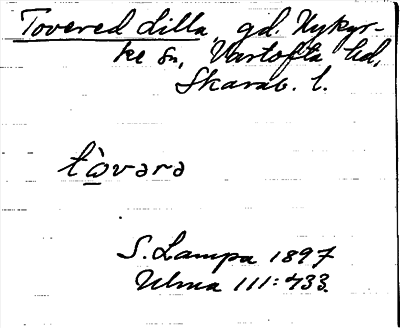 Tovered Lilla, gd. Nykyr-
ke sn, Vartofta hd,
Skarab. l.
tòvərə
S. Lampa 1897
Ulma 111:433.